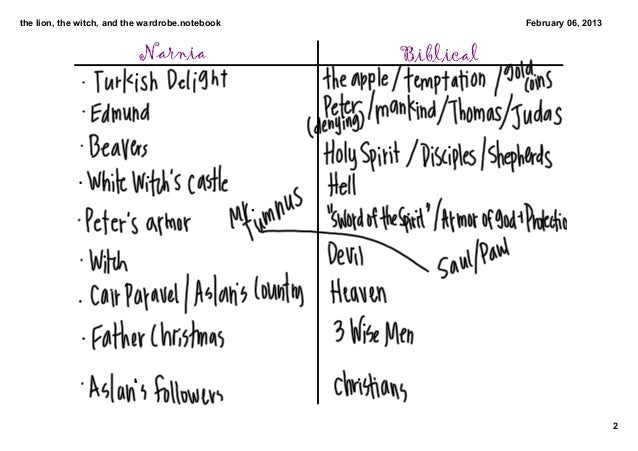 the lion, the witch, and the wardrobe.notebook February 06, 2013
Narnia Biblical
· Turkish Delight the apple/temptation/gold coins
· Edmund Peter (denying)/mankind/Thomas/Judas
· Beavers Holy Spirit/Disciples/Shepherds
· White Witch's castle Hell
· Peter's armor "Sword of the Spirit"/Armor of god + Protectio
Mr. Tumnus Saul/Paul
· Witch Devil
· Cair Paravel/Aslan's Country Heaven
· Father Christmas 3 Wise Men
· Aslan's followers christians
2